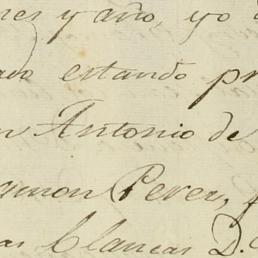 mes y año, yo
estando pr
n Antonio de
amon Perez,
as blancas D.